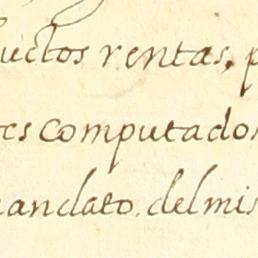 uctos rentas, p
es computados
andato. del mis